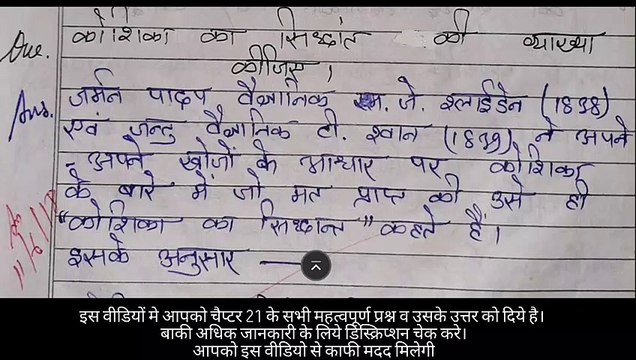 Que. कोशिका का सिद्धांत की व्याख्या
कीजिए।
Ans. जर्मन पादप वैज्ञानिक एम. जे. श्लाईडेन (1838)
एवं जन्तु वैज्ञानिक टी. श्वान (1839) ने अपने
- अपने खोजों के आधार पर कोशिका
के बारे में जो मत प्राप्त की उसे ही
"कोशिका का सिद्धान्त" कहते हैं।
इसके अनुसार —
इस वीडियों मे आपको चैप्टर 21 के सभी महत्वपूर्ण प्रश्न व उसके उत्तर को दिये है।
बाकी अधिक जानकारी के लिये डिस्क्रिप्शन चेक करे।
आपको इस वीडियो से काफी मदद मिलेगी